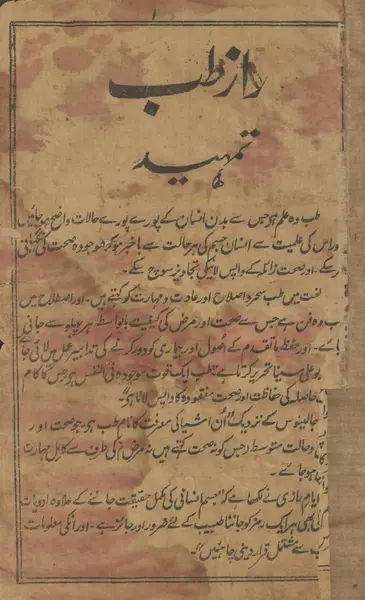 ۱
راز طب
تمہید
طب وہ علم ہو جس سے بدن انسان کے پورے پورے حالات واضح ہو جائیں
اور اس کی علمیت سے انسان جسم کی ہر حالت سے باخبر ہو کر موجودہ صحت کی نگہبانی
رکھے۔ اور صحت زائلہ کے واپس لانیکی تجاویز سوچ سکے۔
لغت میں طب سحر و اصلاح اور عادت و مہارت کو کہتے ہیں۔ اور اصطلاح میں
وہ فن ہے جس سے صحت اور مرض کی کیفیت بالواسطہ ہر پہلو سے جانی
جائے۔ اور حفظ ماتقدم کے اصول اور بیماری کو دور کرنے کی تدابیر عمل میں لائی جائے
بوعلی سینا تحریر کرتا ہے کہ طب ایک قوت موجودہ فی النفس ہو جس کا کام
حاصلہ کی حفاظت اور صحت مفقودہ کا واپس لانا ہو۔
جالینوس کے نزدیک "اُن اشیا کی معرفت کا نام طب ہو جو صحت اور
وحالت متوسط درجس کو نہ صحت کہتے ہیں نہ مرض کی طرف سے کامل مہارت
ہو جائے۔
امام رازی نے لکھا ہے کہ "جسم انسانی کی مکمل حقیقت جاننے کے علاوہ ادویات
کی بھی ہر ایک رمز کو جاننا طبیب کے لئے ضرور اور جائز ہے۔ اور انکی معلومات
سے مشتمل قرار دینی چاہئیں"۔